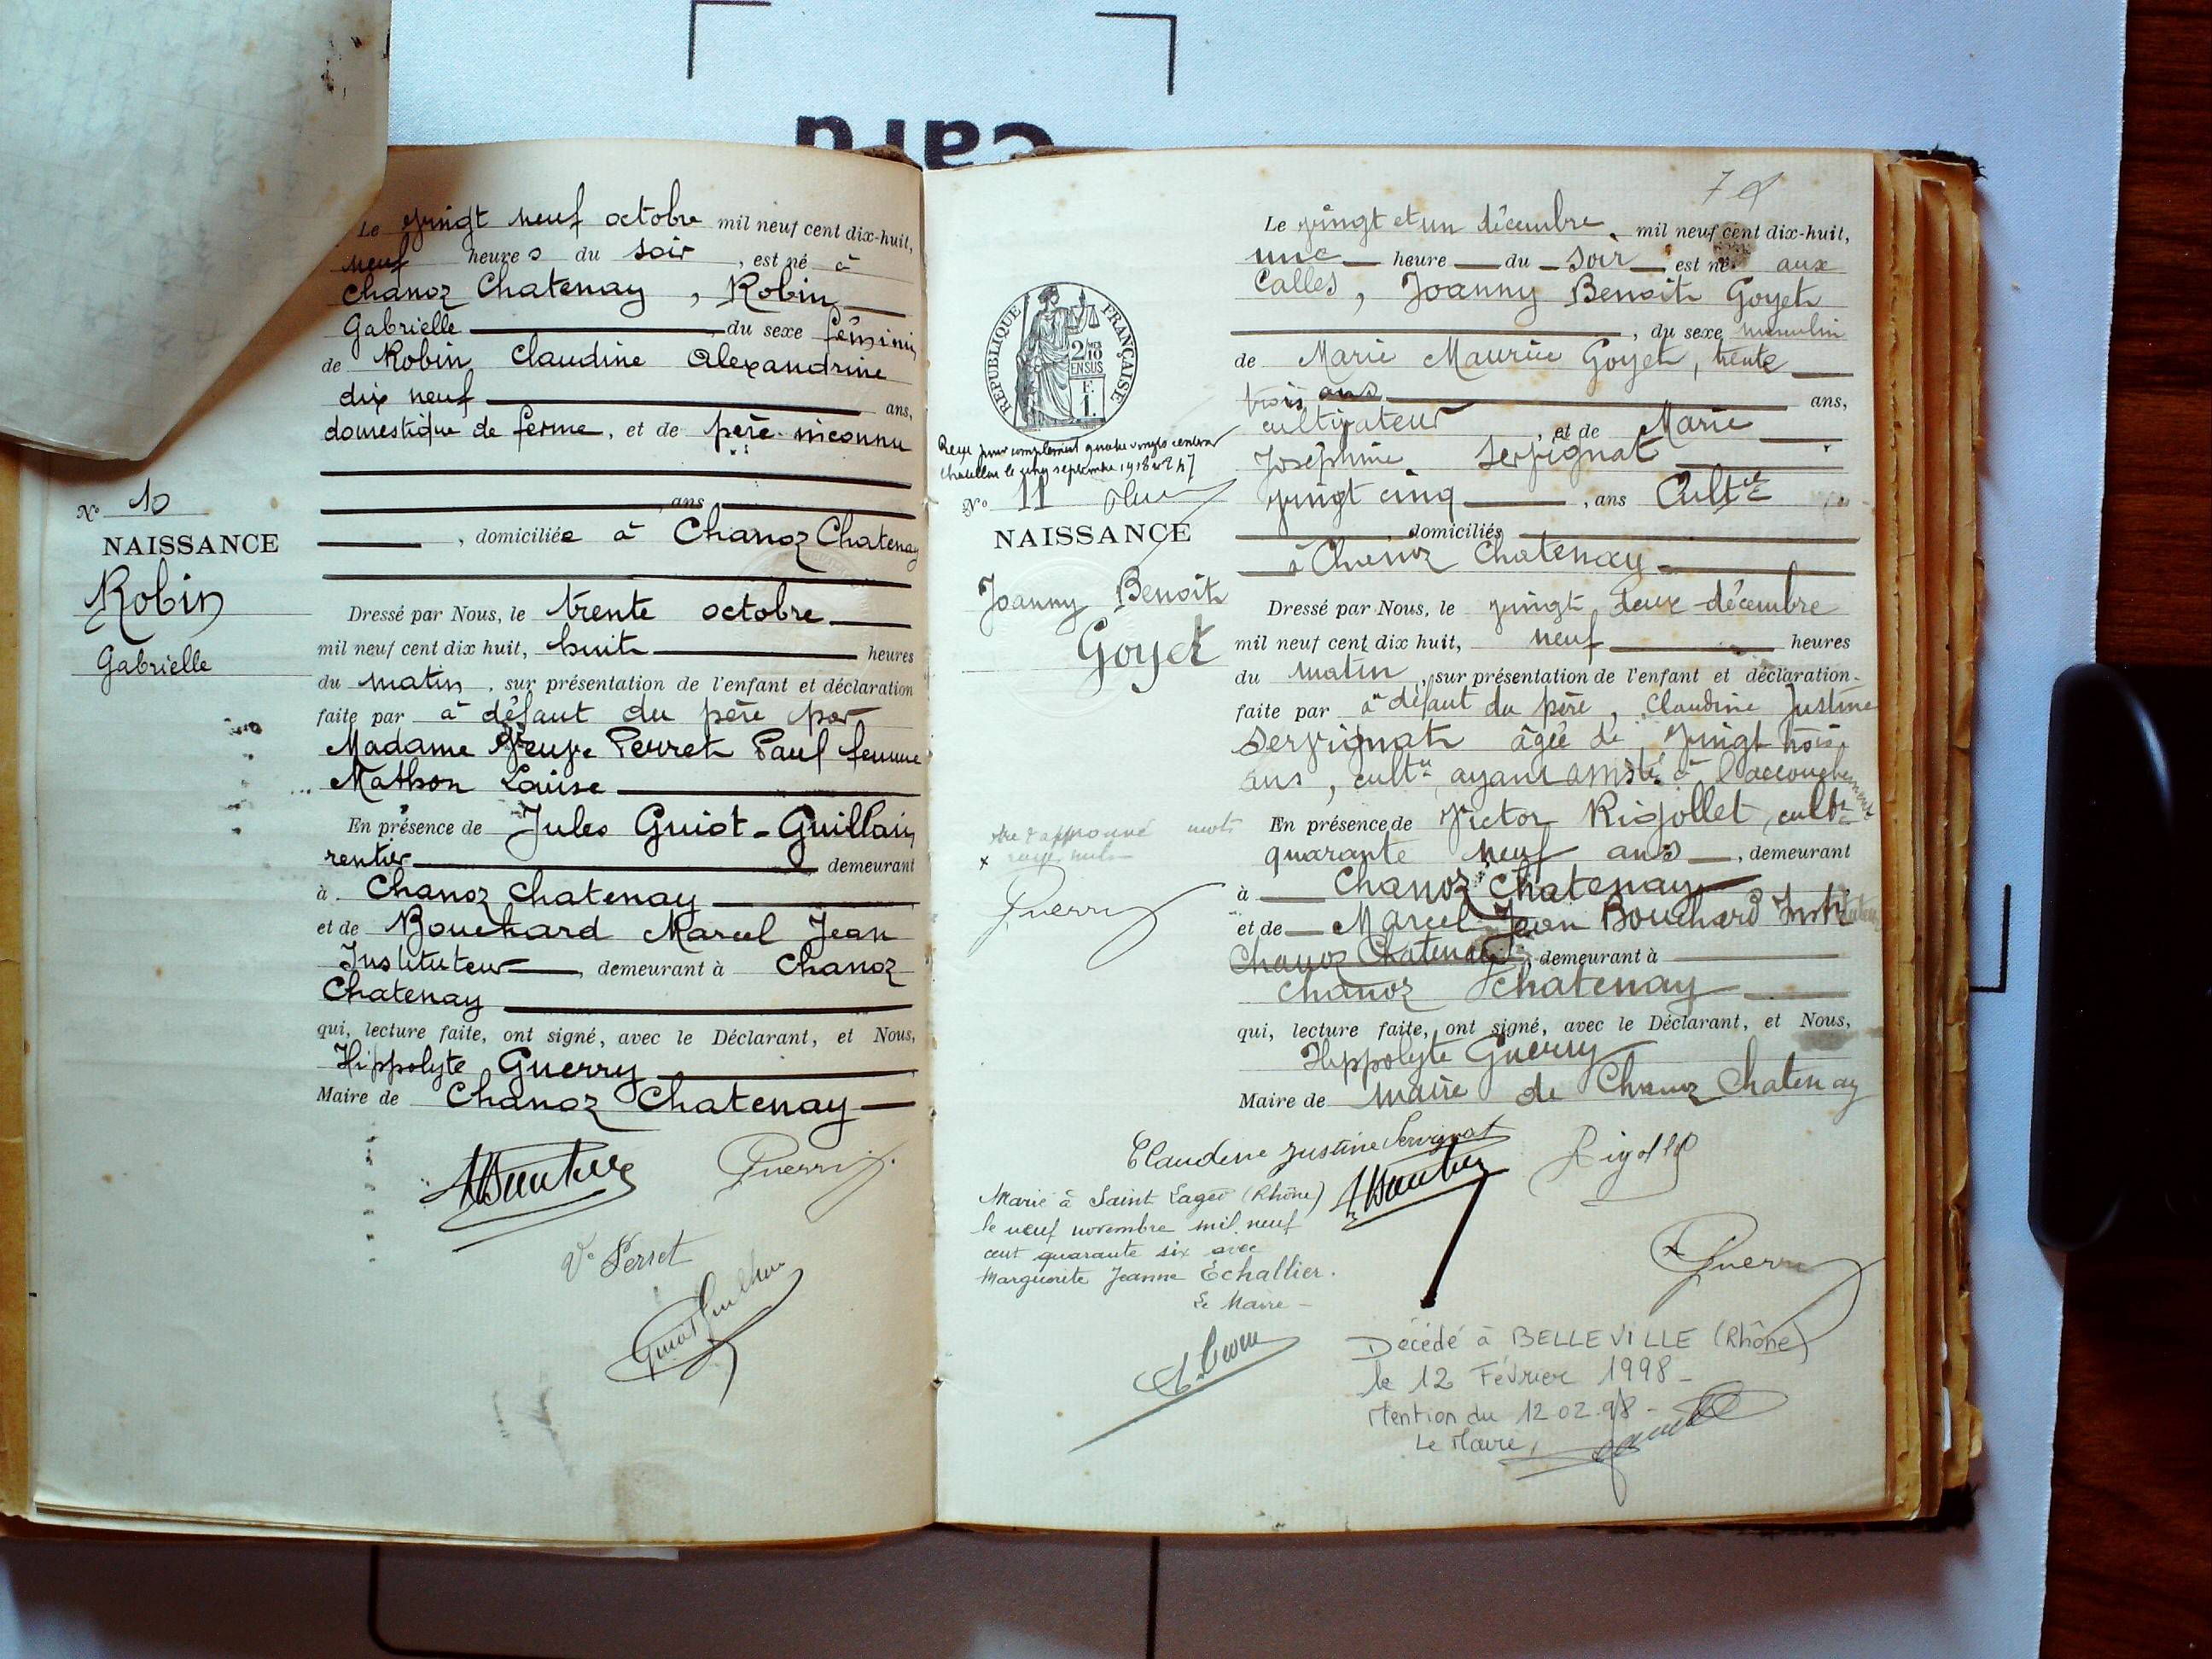 card
Le vingt neuf octobre mil neuf cent dix-huit,
neuf heures du soir, est né à
Chanoz Chatenay, Robin
Gabrielle du sexe féminin
de Robin Claudine Alexandrine
dix neuf ans,
domestique de ferme, et de père inconnu
, ans
, domiciliée à Chanoz Chatenay
N° 10
NAISSANCE
Robin
Gabrielle
Dressé par Nous, le trente octobre
mil neuf cent dix huit, huit heures
du matin, sur présentation de l'enfant et déclaration
faite par à défaut du père par
Madame Veuve Perret Paul femme
Mathon Louise
En présence de Jules Guiot-Guillain
rentier demeurant
à Chanoz Chatenay
et de Bouchard Marcel Jean
Instituteur, demeurant à Chanoz
Chatenay
qui, lecture faite, ont signé, avec le Déclarant, et Nous,
Hippolyte Guerry
Maire de Chanoz Chatenay
Guerry
Ve Perret
7
RÉPUBLIQUE FRANÇAISE
2/10
EN SUS
F.
1.
N° 11
NAISSANCE
Joanny Benoit
Goyet
Le vingt et un décembre mil neuf cent dix-huit,
une heure du soir est né aux
Calles, Joanny Benoit Goyet
, du sexe masculin
de Marie Maurice Goyet, trente
trois ans ans,
cultivateur, et de Marie
Joséphine Servignat
vingt cinq, ans Cultce
domiciliés
à Chanoz Chatenay
Dressé par Nous, le vingt deux décembre
mil neuf cent dix huit, neuf heures
du matin, sur présentation de l'enfant et déclaration
faite par à défaut du père, Claudine Justine
Servignat âgée de vingt trois
ans, cultce ayant assisté à l'accouchement
En présence de Victor Rigollet, cultr
quarante neuf ans, demeurant
à Chanoz Chatenay
et de Marcel Jean Bouchard Instituteur
Chanoz Chatenay, demeurant à
Chanoz Chatenay
qui, lecture faite, ont signé, avec le Déclarant, et Nous,
Hippolyte Guerry
Maire de maire de Chanoz Chatenay
Guerry
Claudine Justine Servignat
Rigollet
Guerry
Marié à Saint Lager (Rhône)
le neuf novembre mil neuf
cent quarante six avec
Marguerite Jeanne Echallier.
Le Maire
Décédé à BELLEVILLE (Rhône)
le 12 Février 1998
Mention du 12.02.98
Le Maire,